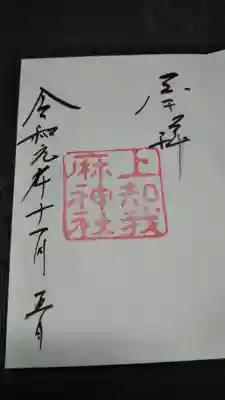 奉拝
上知我
麻神社
令和元年十一月五日